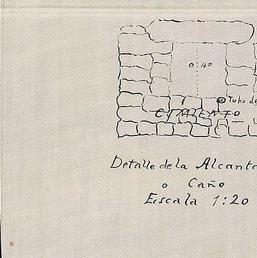 0.40
Tubo de
CIMIENTO
Detalle de la Alcanta
o Caño
Escala 1:20